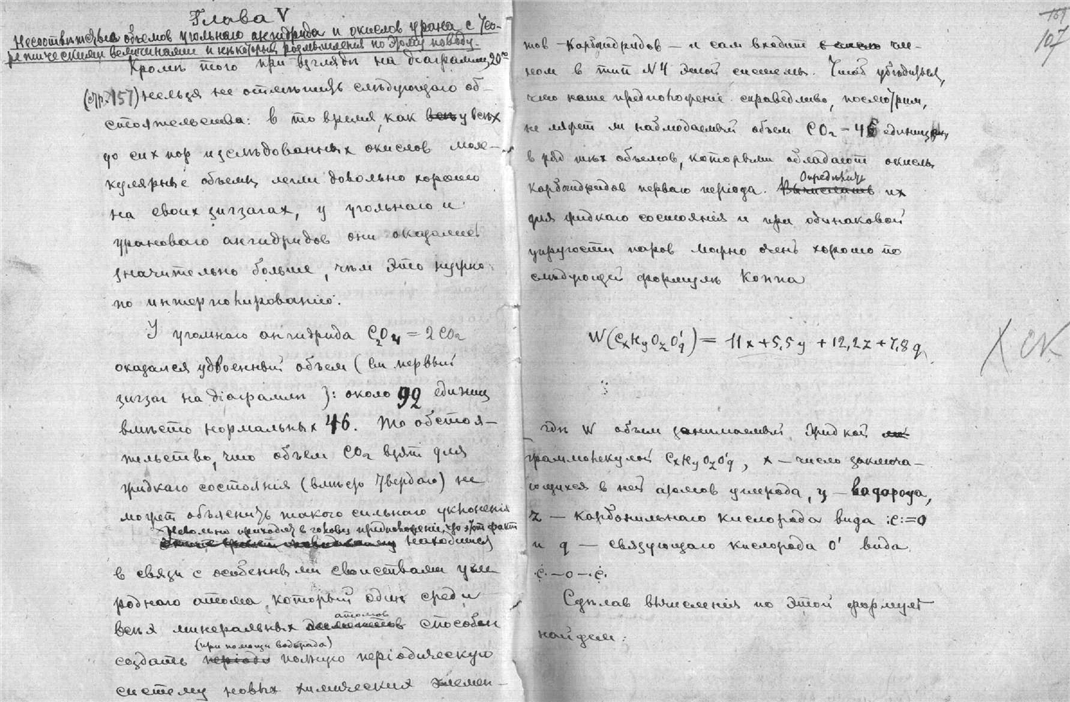 Глава V
Несоотвѣтствiе объемовъ угольнаго ангидрида и окисловъ урана с тео-
ретическими величинами и нѣкоторыя размышленiя по этому поводу.
Кромѣ того при взглядѣ на дiаграмму 20ю
(стр. 157) нельзя не отмѣтить слѣдующаго об-
стоятельства: в то время, как у всѣх
до сих пор изслѣдованных окислов моле-
кулярные объемы легли довольно хорошо
на своих зигзагах, у угольнаго и
урановаго ангидридов они оказались
значительно больше, чѣм это нужно
по интерполированiю.
У угольнаго ангидрида C2O4 = 2CO2
оказался удвоенный объем (см первый
зигзаг на дiаграммѣ): около 92 единиц
вмѣсто нормальных 46. То обстоя-
тельство, что объем CO2 взят для
жидкаго состоянiя (вмѣсто твердаго) не
может объяснить такого сильнаго уклоненiя
невольно приходит в голову предположенiе, что этот факт
находится
в связи с особенными свойствами угле
роднаго атома, который один среди
всѣх минеральных атомов способен
создать (при помощи водорода) полную перiодическую
систему новых химических элемен-
107
тов – карбгидридов – и сам входит чле-
ном в тип № 4 этой системы. Чтоб убѣдиться,
что наше предположенiе справедливо, посмотрим,
не ляжет ли наблюдаемый объем CO2 – 46 единиц,
в ряд тѣх объемов, которыми обладают окислы
карбгидридов перваго перiода. Опредѣлить их
для жидкаго состоянiя и при одинаковой
упругости паров можно очень хорошо по
слѣдующей формулѣ Коппа
W(CxHyOzO'q) = 11x + 5,5y + 12,2z + 7,8q
X ск
гдѣ W объем занимаемый жидкой
граммолекулой CxHyOzO'q, x – число заключа-
ющихся в ней атомов углерода, y – водорода,
z – карбонильнаго кислорода вида :C:=O
и q – связующаго кислорода O' вида
·C·–O–·C·
Сдѣлав вычисленiя по этой формулѣ
найдем: